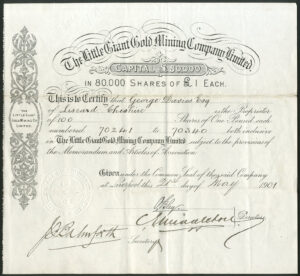 The Little Giant Gold Mining Company Limited.
CAPITAL £80000
IN 80.000 SHARES OF £1 EACH.
This is to Certify that George Davies Esq
of Liscard Cheshire is the Proprietor
of 100 Shares of One Pound each
numbered 70241 to 70340 both inclusive
in The Little Giant Gold Mining Company Limited subject to the provisions of
the Memorandum and Articles of Association
Given under the Common Seal of the said Company
at Liverpool this day of May 1901
THE LITTLE GIANT
GOLD MINING CO
LIMITED
C Middleton
Secretary